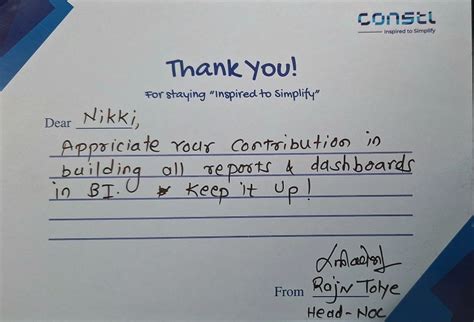 CONSTL
Inspired to Simplify
Thank You!
For staying "Inspired to Simplify"
Dear Nikki,
Appriciate Your Contribution in
building all reports & dashboards
in BI. Keep it Up!
From Rajn Tolye
Head-NOC